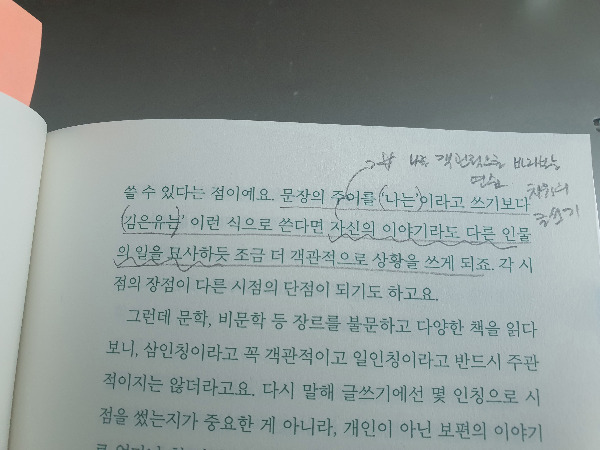 # 나를 객관적으로 바라보는
연습
글쓰기
쓸 수 있다는 점이에요. 문장의 주어를 '나는'이라고 쓰기보다
'김은유는' 이런 식으로 쓴다면 자신의 이야기라도 다른 인물
의 일을 묘사하듯 조금 더 객관적으로 상황을 쓰게 되죠. 각 시
점의 장점이 다른 시점의 단점이 되기도 하고요.
그런데 문학, 비문학 등 장르를 불문하고 다양한 책을 읽다
보니, 삼인칭이라고 꼭 객관적이고 일인칭이라고 반드시 주관
적이지는 않더라고요. 다시 말해 글쓰기에선 몇 인칭으로 시
점을 썼는지가 중요한 게 아니라, 개인이 아닌 보편의 이야기